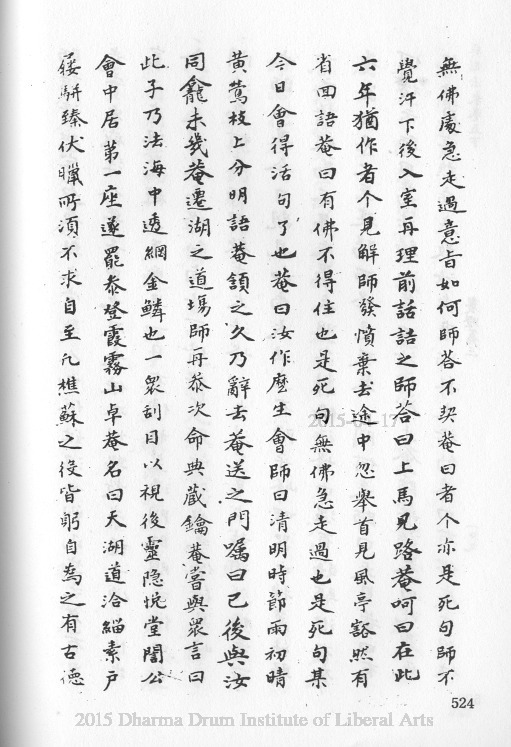 無佛處急走過意旨如何師荅不契菴曰者个亦是死句師不
覺汗下後入室再理前話詰之師荅曰上馬見路菴呵曰在此
六年猶作者个見解師發憤棄去途中忽舉首見風亭豁然有
省回語菴曰有佛不得住也是死句無佛急走過也是死句某
今日會得活句了也菴曰汝作麼生會師曰清明時節雨初晴
黃鶯枝上分明語菴頷之久乃辭去菴送之門囑曰已後與汝
同龕未幾菴遷湖之道場師再叅次命典藏鑰菴嘗與眾言曰
此子乃法海中透網金鱗也一眾刮目以視後靈隱悅堂誾公
會中居第一座遂罷叅登霞霧山卓菴名曰天湖道洽緇素戶
屨駢臻伏臘所須不求自至凡樵蘇之役皆躬自為之有古德
524
2015-04-17
2015 Dharma Drum Institute of Liberal Arts